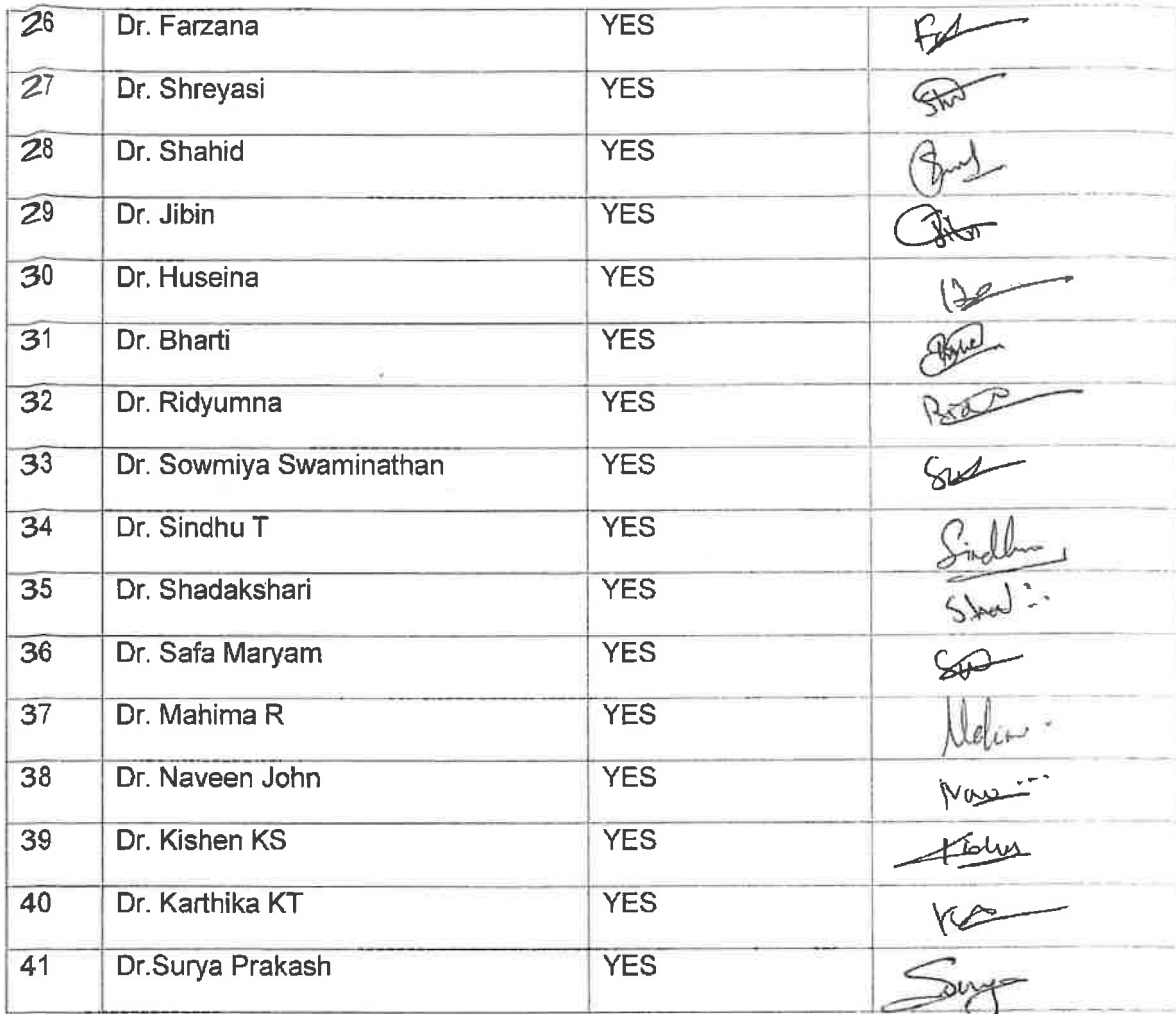 26 Dr. Farzana YES
27 Dr. Shreyasi YES
28 Dr. Shahid YES
29 Dr. Jibin YES
30 Dr. Huseina YES
31 Dr. Bharti YES
32 Dr. Ridyumna YES
33 Dr. Sowmiya Swaminathan YES
34 Dr. Sindhu T YES Sindhu
35 Dr. Shadakshari YES
36 Dr. Safa Maryam YES
37 Dr. Mahima R YES
38 Dr. Naveen John YES
39 Dr. Kishen KS YES
40 Dr. Karthika KT YES
41 Dr.Surya Prakash YES Surya